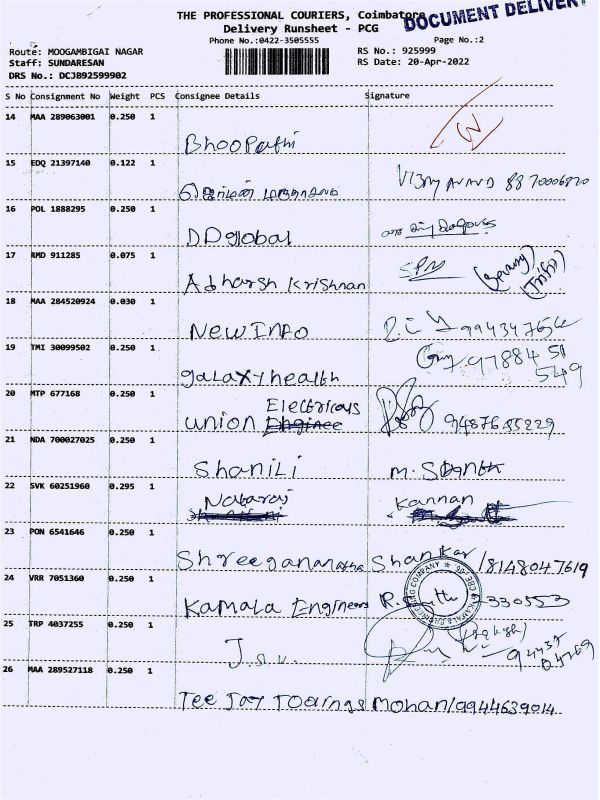 THE PROFESSIONAL COURIERS, Coimbatore
DOCUMENT DELIVERY
Delivery Runsheet - PCG
Phone No.:0422-3505555
Page No.:2
Route: MOOGAMBIGAI NAGAR
RS No.: 925999
Staff: SUNDARESAN
RS Date: 20-Apr-2022
DRS No.: DCJB92599902
S No Consignment No Weight PCS Consignee Details Signature
14 MAA 289063001 0.250 1
Bhoopathi
15 EDQ 21397140 0.122 1
16 POL 1888295 0.250 1
DD global
17 RMD 911285 0.075 1
SPN
Adharsh Krishnan
18 MAA 284520924 0.030 1
New INFO
19 TMI 30099502 0.250 1
97884 51
549
galaxy health
20 MTP 677168 0.250 1
Electricals
union Enginee 9487655229
21 NDA 700027025 0.250 1
Shanili
22 SVK 60251960 0.295 1
Nataraj Kannan
23 PON 6541646 0.250 1
Shree gananatha Shankar /8148047619
24 VRR 7051360 0.250 1
Kamala Engineers 330553
25 TRP 4037255 0.250 1
J.S.V.
26 MAA 289527118 0.250 1
Tee Jay Toolings Mohan/9944639014